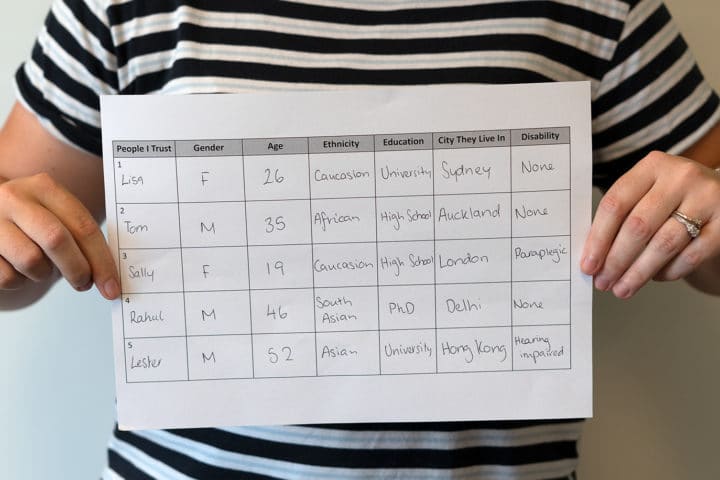 People I Trust Gender Age Ethnicity Education City They Live In Disability
1
Lisa F 26 Caucasion University Sydney None
2
Tom M 35 African High School Auckland None
3
Sally F 19 Caucasion High School London Paraplegic
4
Rahul M 46 South Asian PhD Delhi None
5
Lester M 52 Asian University Hong Kong Hearing impaired